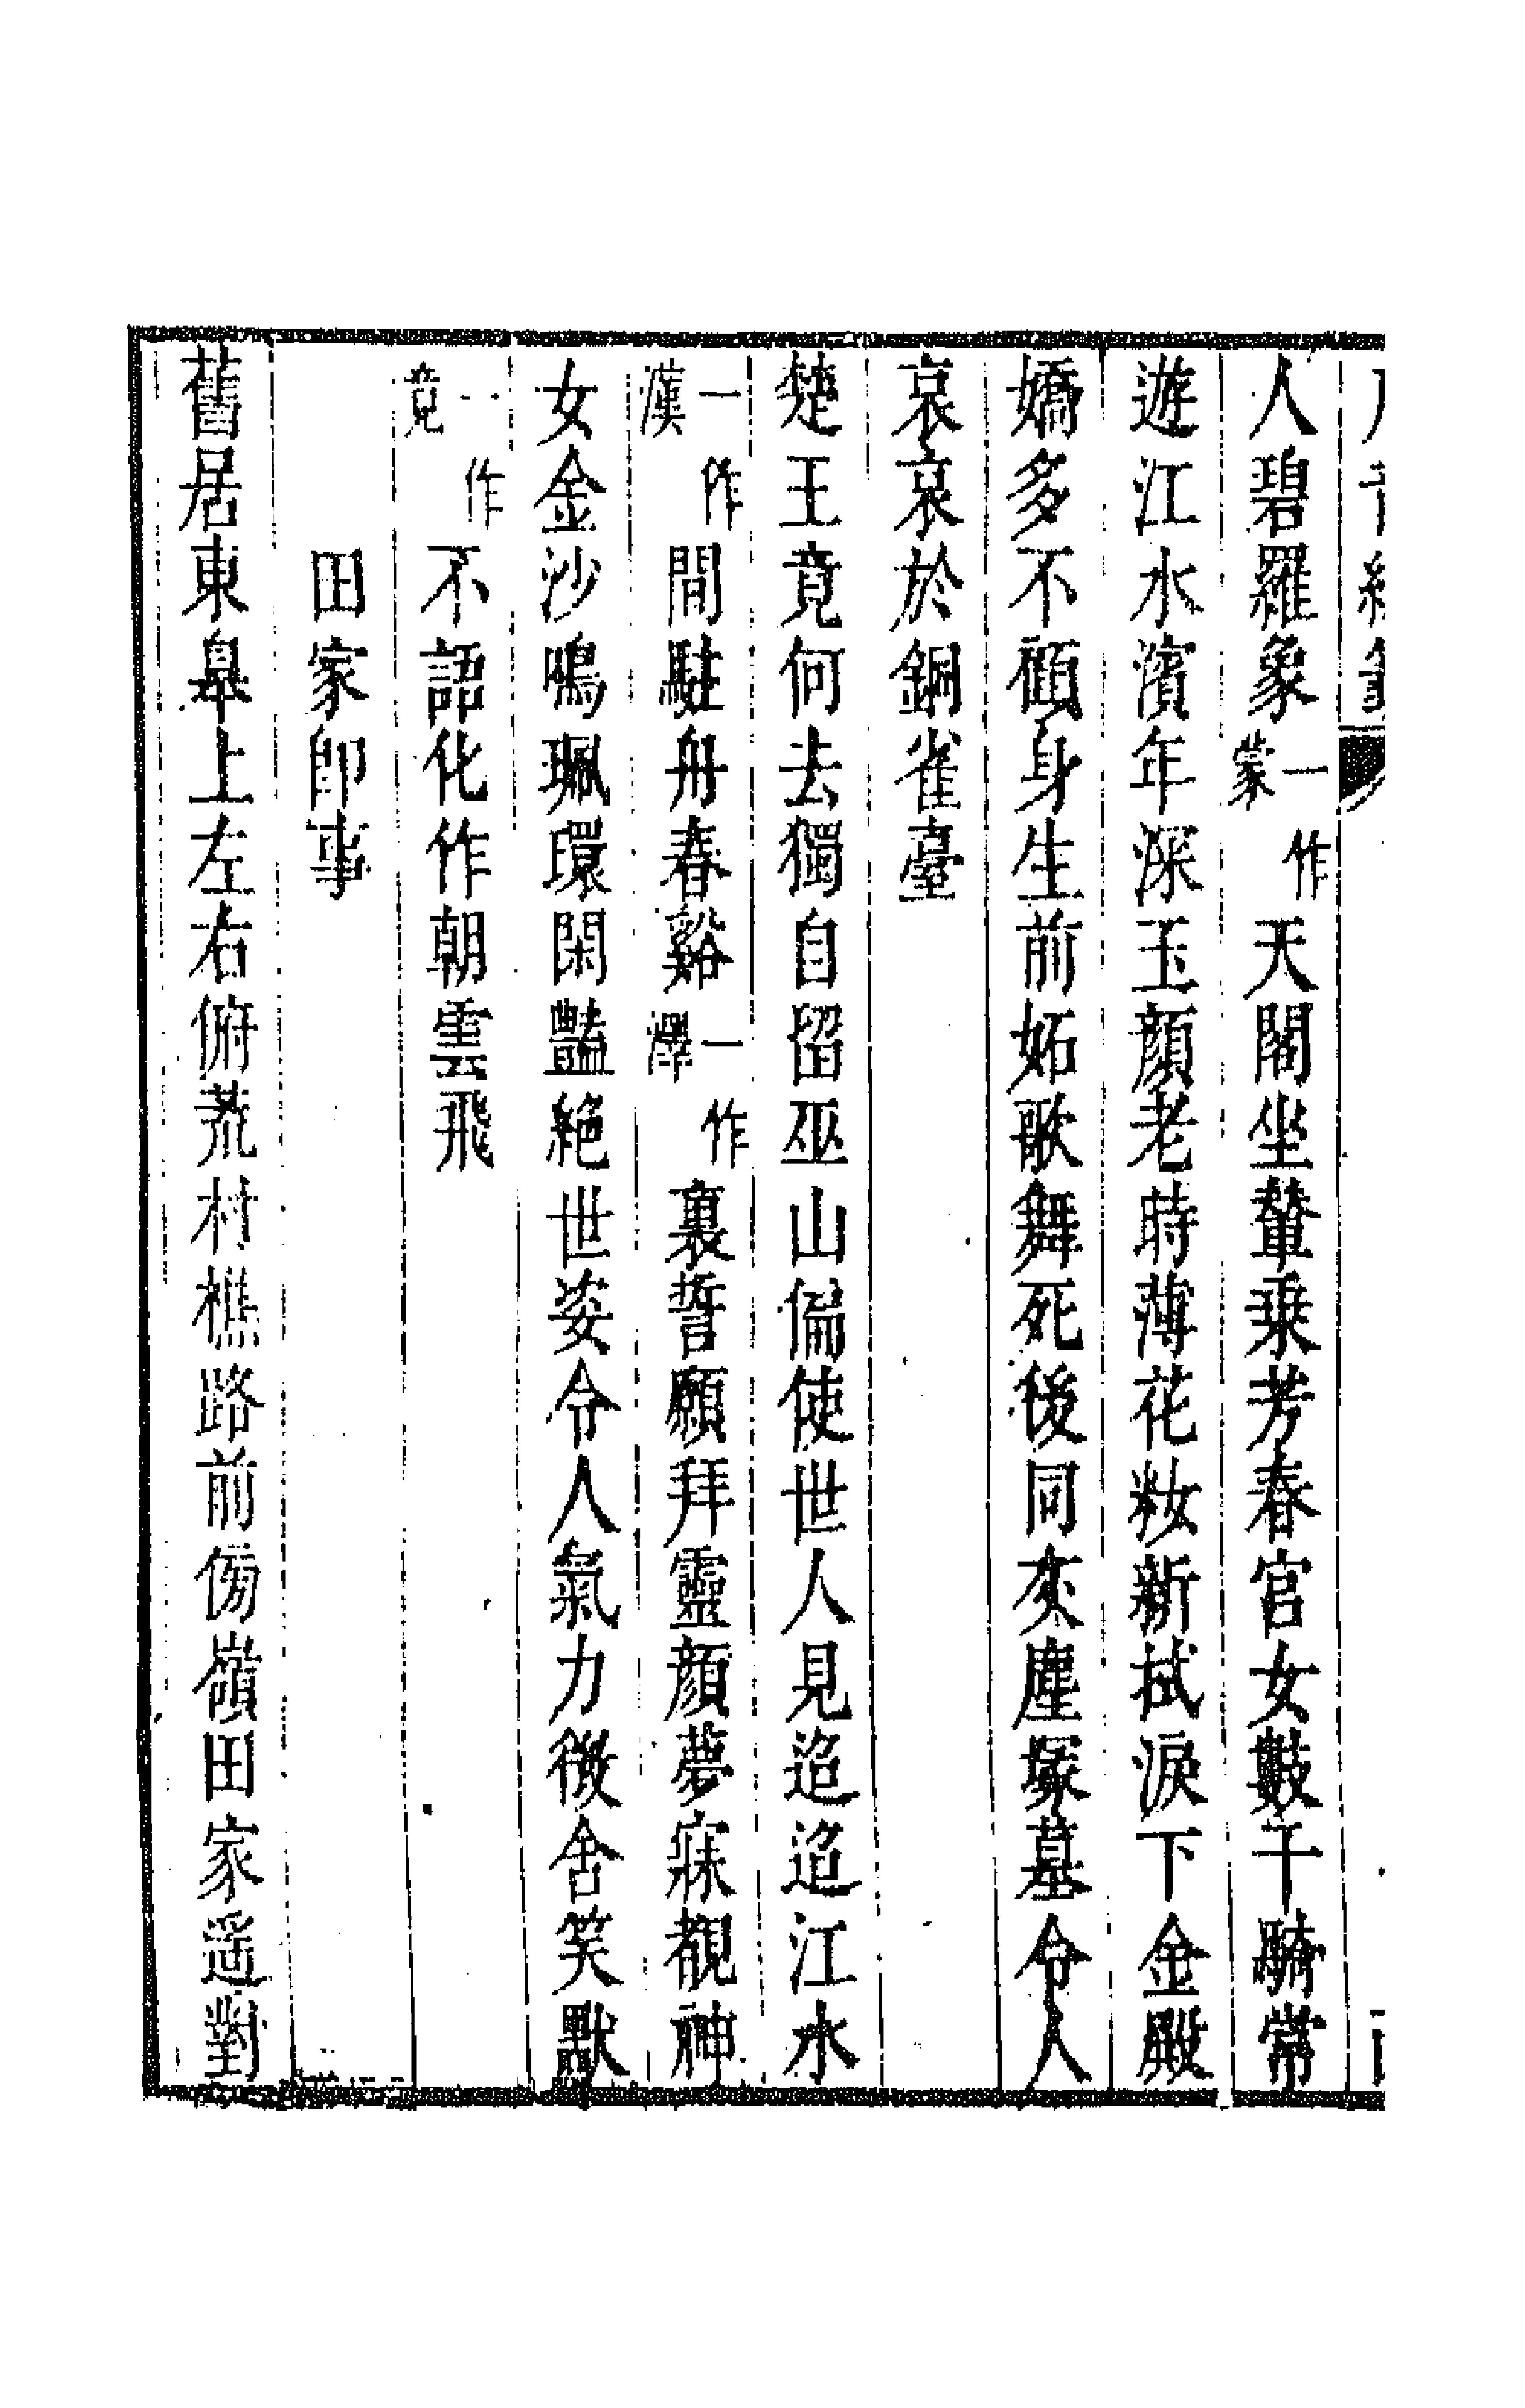 人碧羅象一作蒙天閣坐輦乗芳春宮女數千騎常
遊江水濱年深玉顔老時薄花粧新拭淚下金殿
嬌多不顧身生前妬歌舞死後同灰塵塚墓令人
哀哀於銅雀臺
楚王竟何去獨自留巫山偏使世人見迢迢江水
一作漢間駐舟春谿一作澤裏誓願拜靈顔夢寐覩神
女金沙鳴珮環閑豔絶世姿令人氣力微含笑默
一作竟不語化作朝雲飛
田家卽事
舊居東皋上左右俯荒村樵路前傍嶺田家遥對